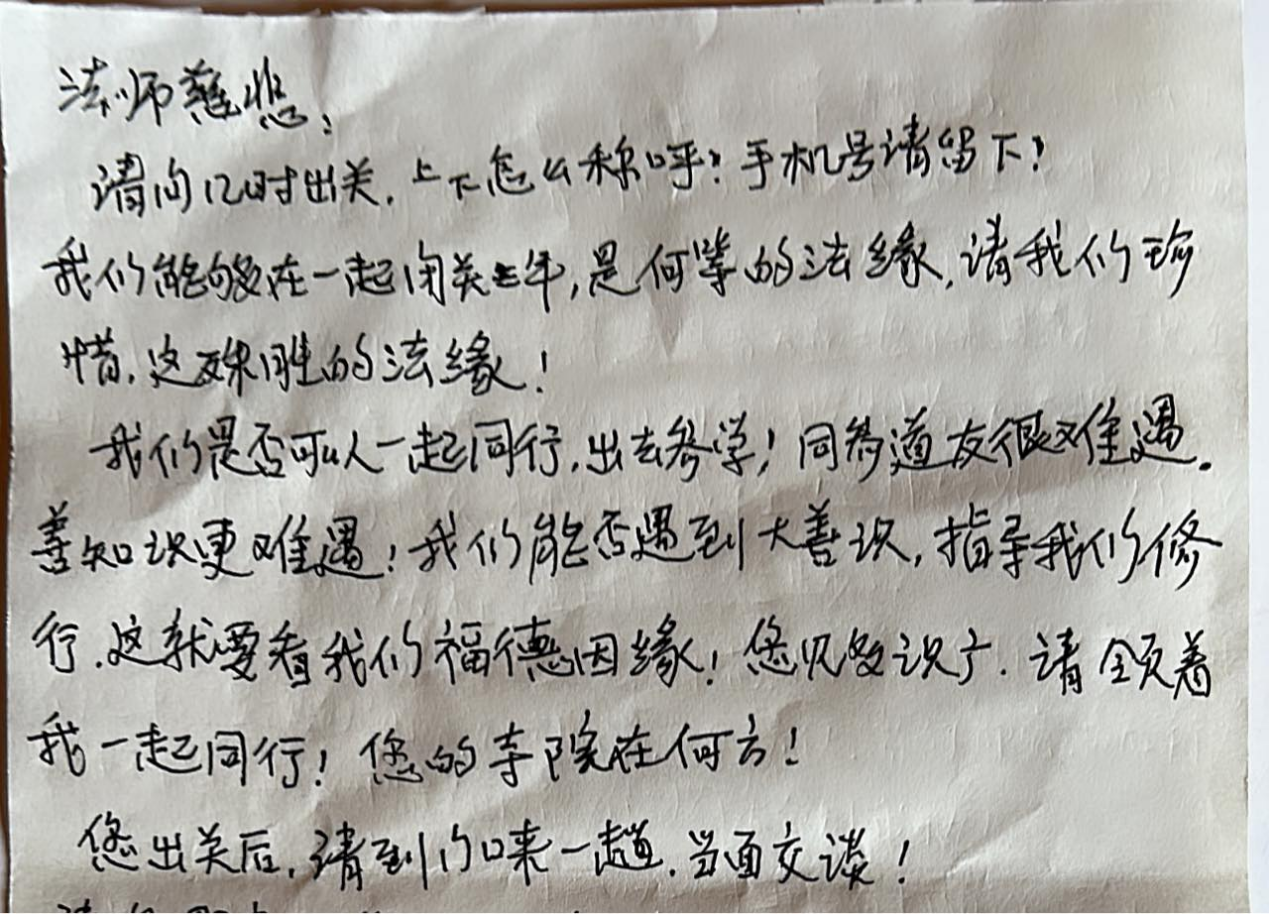 法师慈悲:
请问几时出关.上下怎么称呼?手机号请留下?
我们能够在一起闭关七年,是何等的法缘,请我们珍
惜.这殊胜的法缘!
我们是否可以一起同行.出去参学!同参道友很难遇.
善知识更难遇!我们能否遇到大善识,指导我们修
行.这就要看我们福德因缘!您见多识广.请领着
我一起同行!您的寺院在何方!
您出关后.请到门口来一趟.当面交谈!